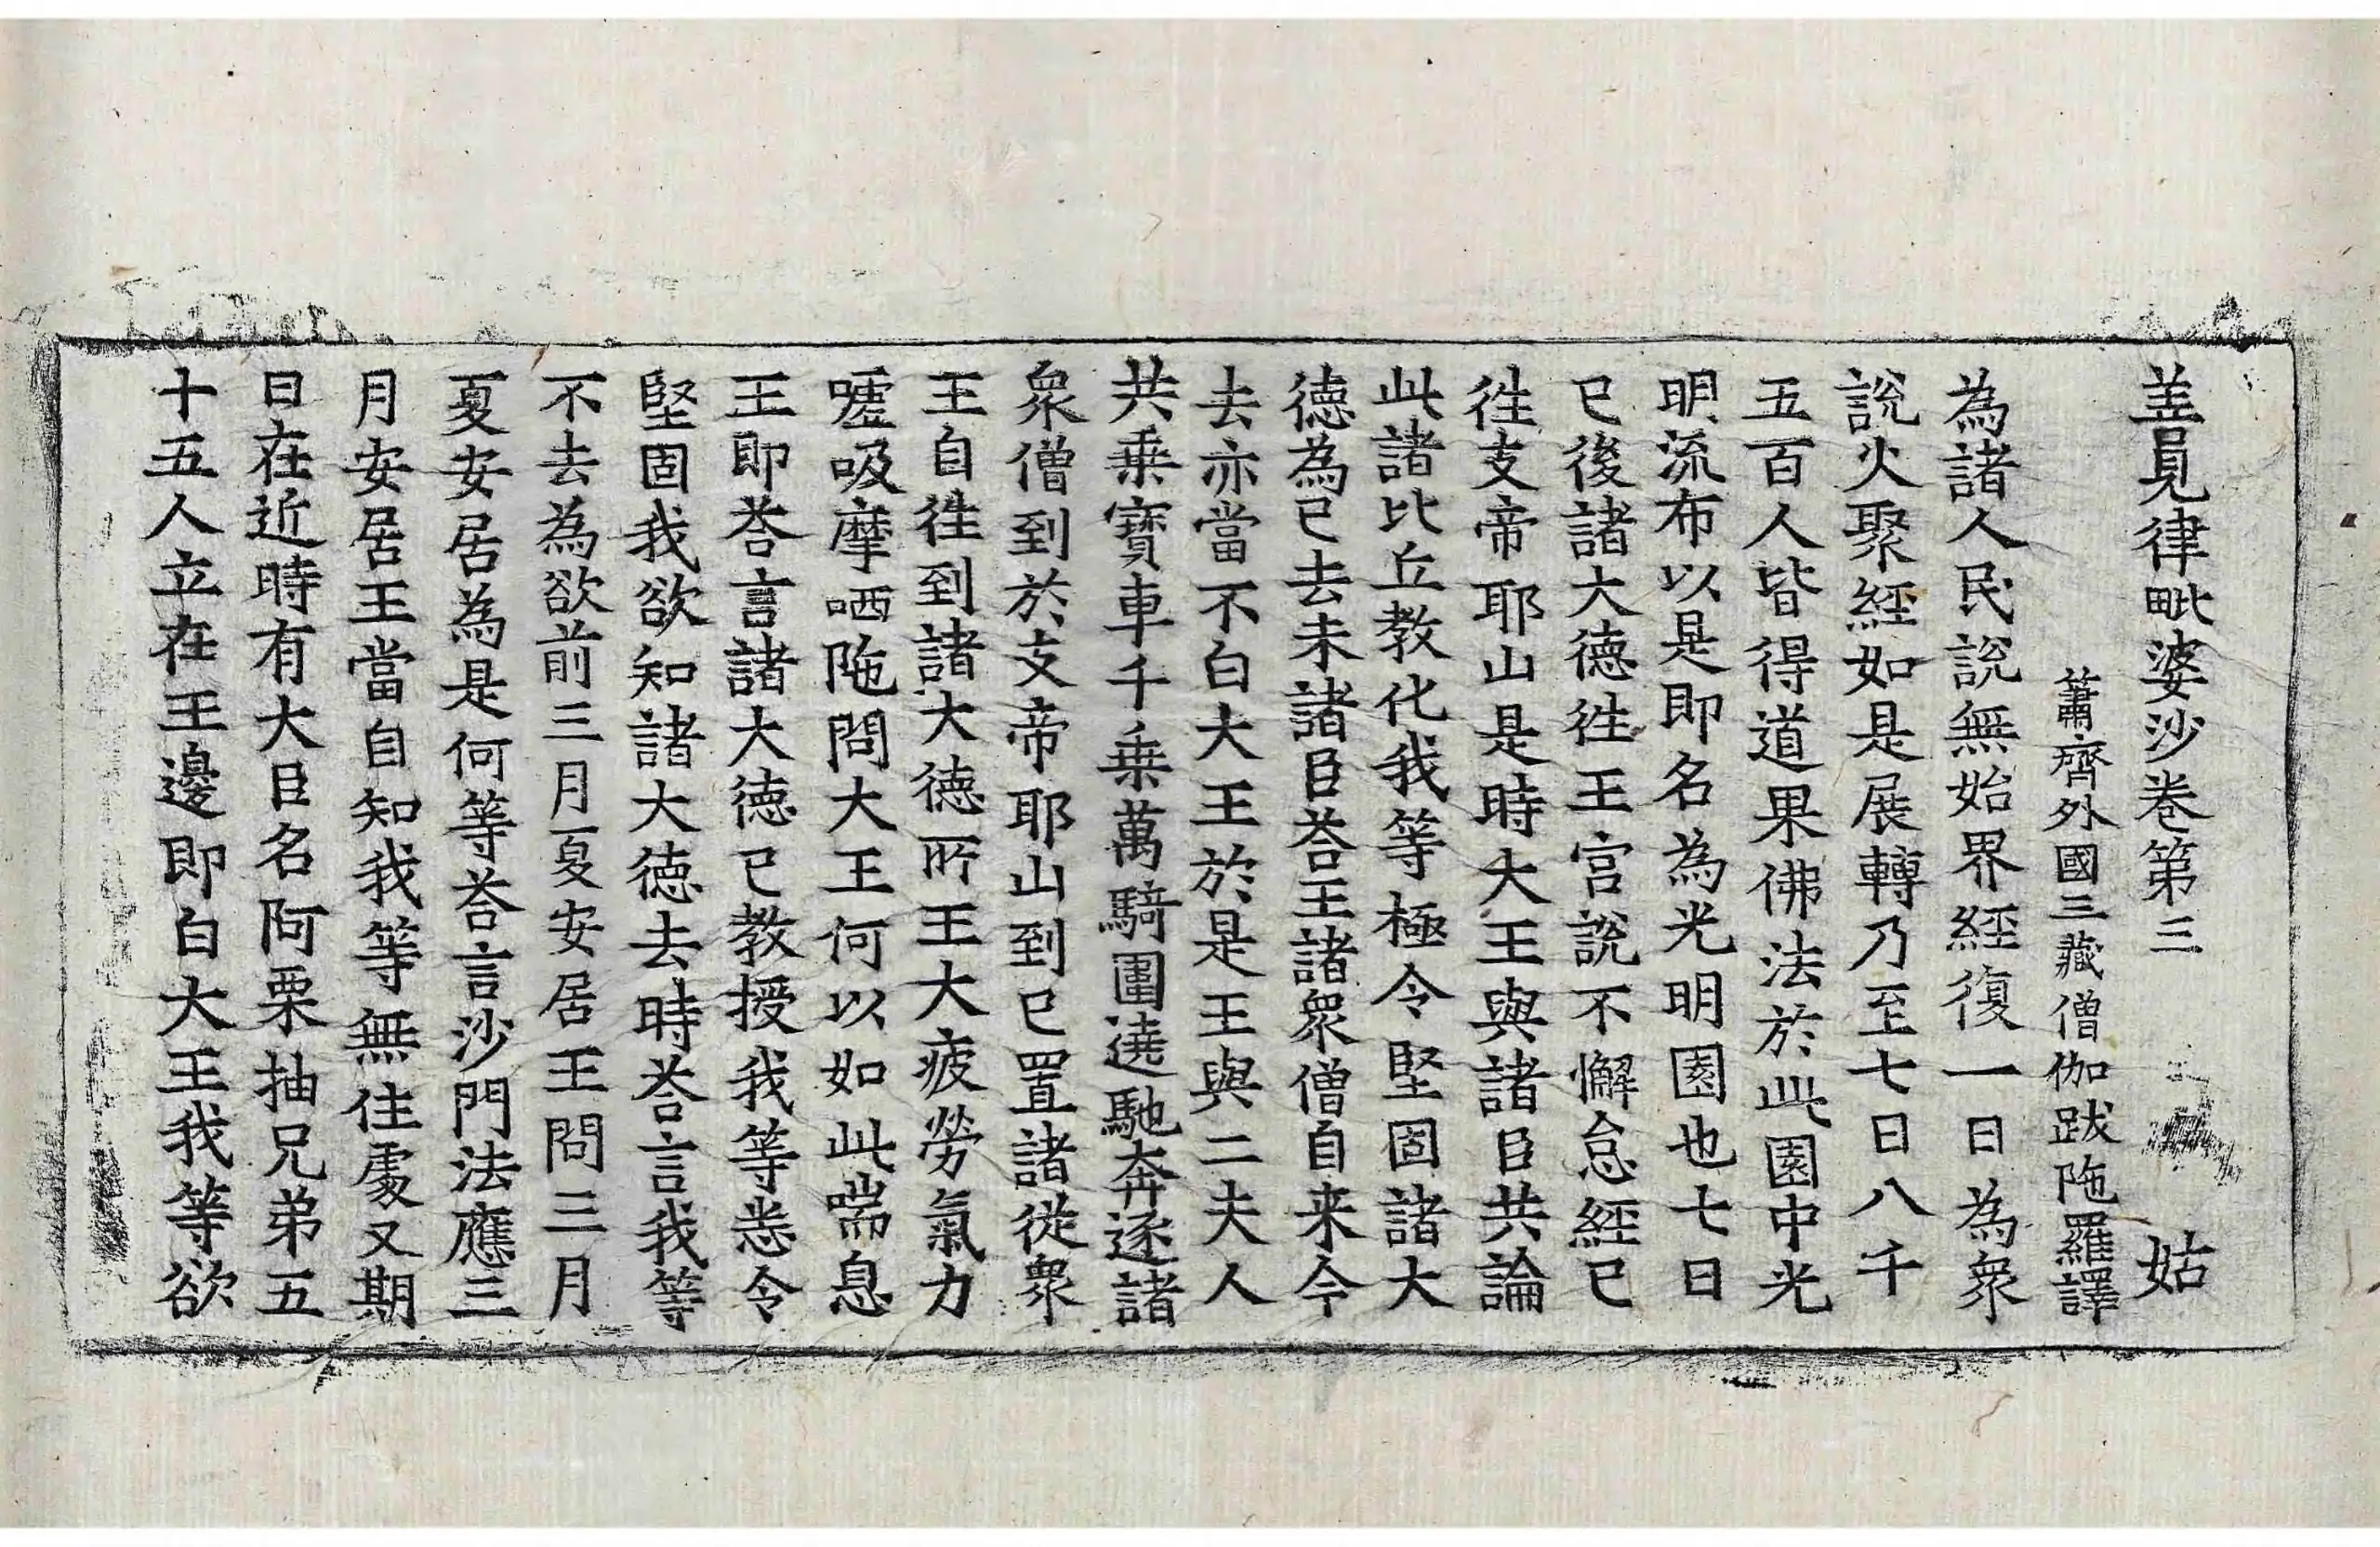 善見律毗婆沙卷第三 姑
蕭齊外國三藏僧伽跋陁羅譯
為諸人民說無始界經復一日為衆
說火聚經如是展轉乃至七日八千
五百人皆得道果佛法於此園中光
明流布以是即名為光明園也七日
已後諸大德徃王宫說不懈怠經已
徃支帝耶山是時大王與諸臣共論
此諸比丘教化我等極令堅固諸大
德為已去未諸臣荅王諸衆僧自来今
去亦當不白大王於是王與二夫人
共乗寶車千乗萬騎圍遶馳奔逐諸
衆僧到於支帝耶山到已置諸從衆
王自徃到諸大德所王大疲勞氣力
嘘吸摩哂陁問大王何以如此喘息
王即荅言諸大德已教授我等悉令
堅固我欲知諸大德去時荅言我等
不去為欲前三月夏安居王問三月
夏安居為是何等荅言沙門法應三
月安居王當自知我等無住處又期
日在近時有大臣名阿栗抽兄弟五
十五人立在王邊即白大王我等欲